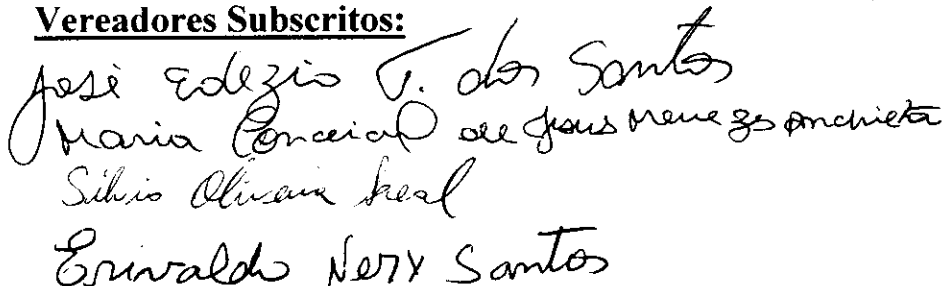 Vereadores Subscritos:
José Edezio T. dos Santos
Maria Conceição de Jesus Menezes Anchieta
Silvio Oliveira Leal
Erivaldo Nery Santos